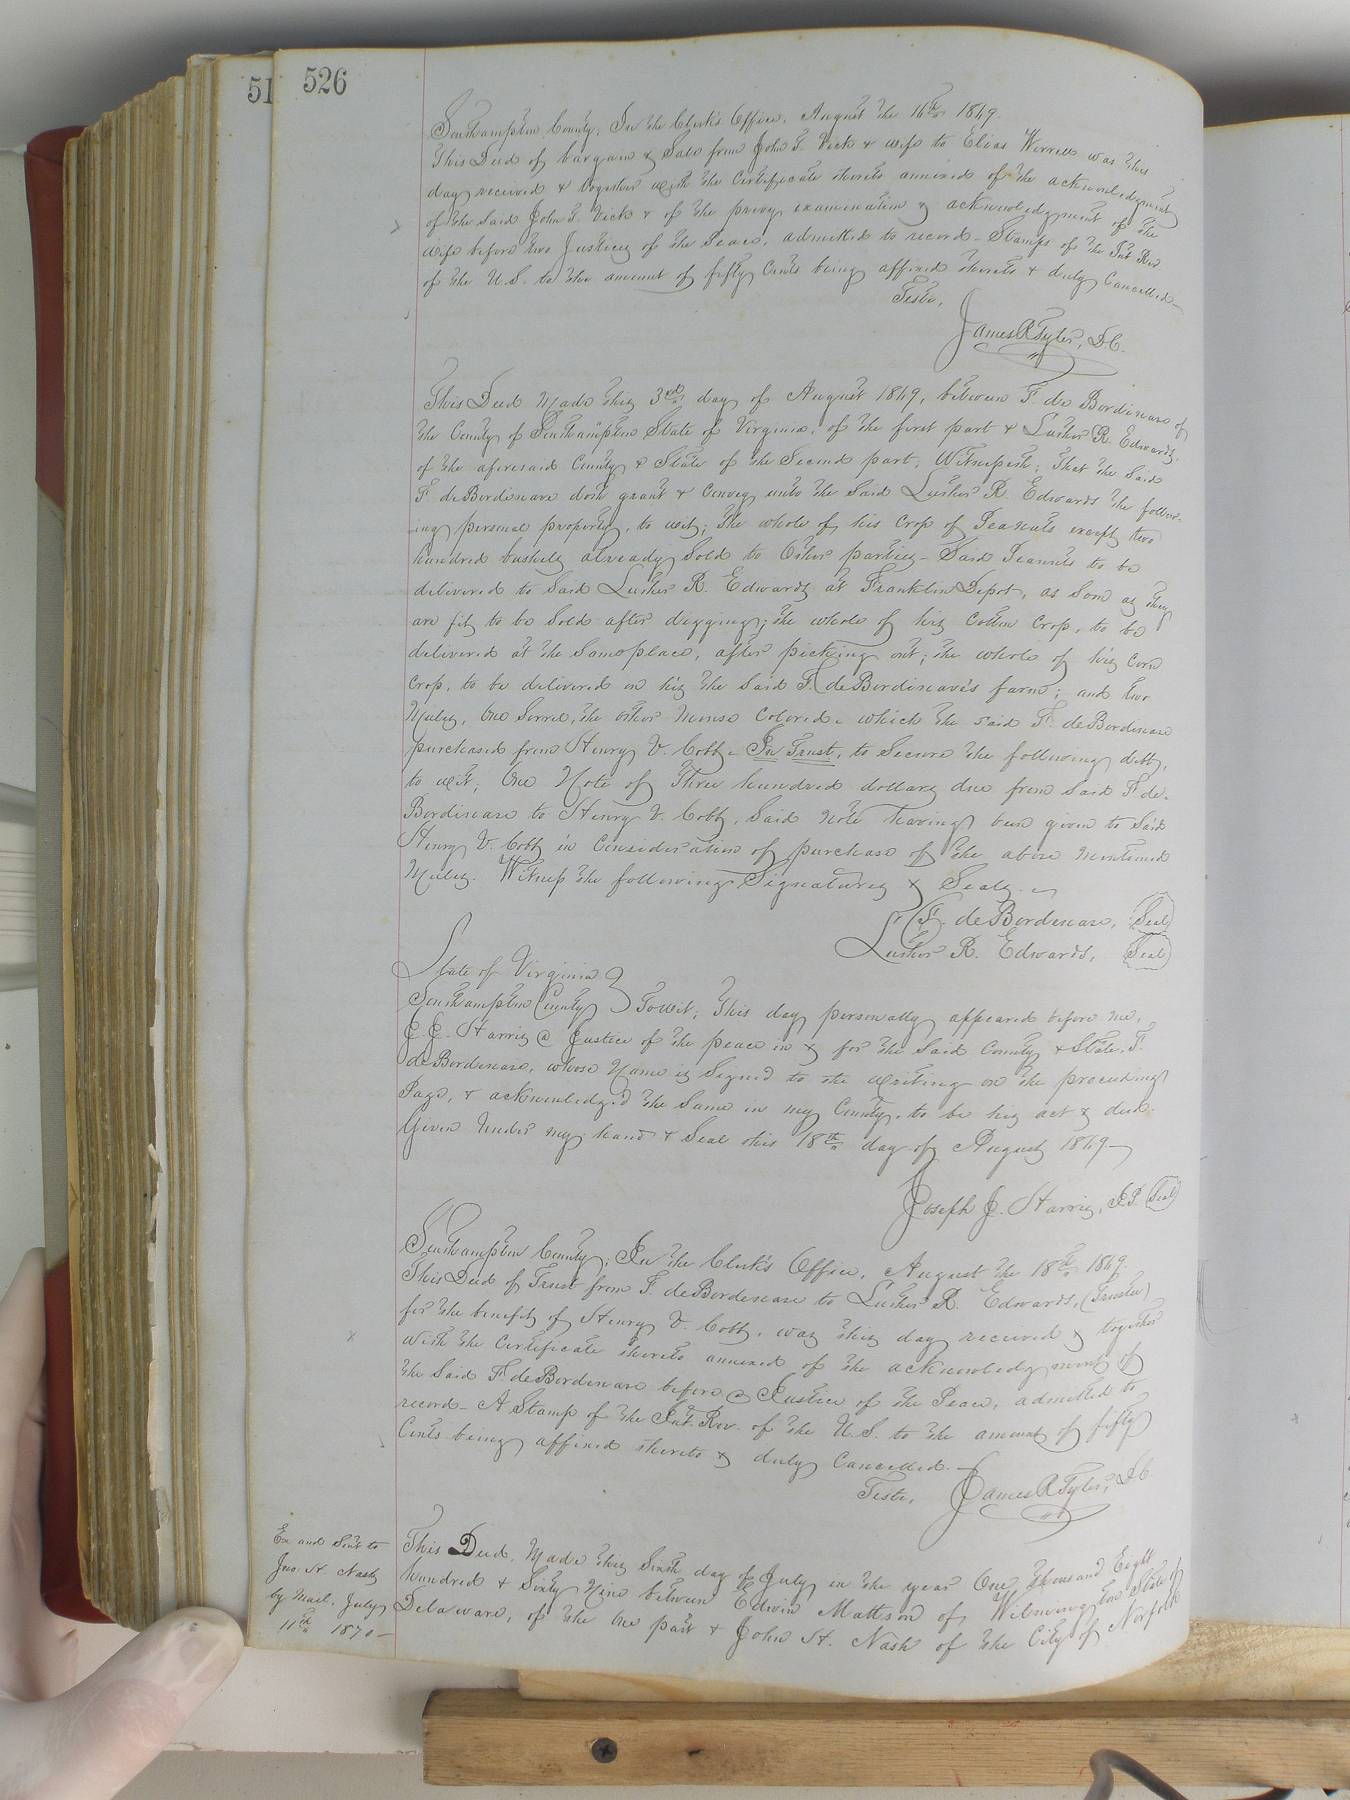 51
526
Southampton County, In the Clerk's Office, August the 16th 1869.
This Deed of bargain & Sale from John T. Vick & wife to Elias Worrell was this
day received & together with the Certificate thereto annexed of the acknowledgment
of the said John T. Vick & of the privy examination & acknowledgment of the
wife before two Justices of the Peace, admitted to record - Stamps of the Int Rev
of the U.S. to the amount of fifty Cents being affixed thereto & duly Cancelled -
Teste,
James R Tyler, D.C.
This Deed Made this 3rd day of August 1869, between F. de Bordenave of
the County of Southampton State of Virginia, of the first part & Luther R. Edwards,
of the aforesaid County & State of the Second part; Witnesseth; That the Said
F de Bordenave doth grant & Convey unto the Said Luther R. Edwards the follow-
ing personal property, to wit; the whole of his Crop of Peanuts except two
hundred bushels already Sold to Other parties - Said Peanuts to be
delivered to Said Luther R. Edwards at Franklin Depot, as Soon as they
are fit to be Sold after digging; the whole of his Cotton Crop, to be
delivered at the Same place, after picking out; the whole of his Corn
Crop, to be delivered on his the Said F. de Bordenave's farm; and two
Mules, One Sorrel, the other Mouse Colored - which the said F. de Bordenave
purchased from Henry V. Cobb - In Trust, to Secure the following debts,
to wit; One Note of Three hundred dollars due from Said F de-
Bordenave to Henry V. Cobb, Said note having been given to Said
Henry V. Cobb in Consideration of purchase of the above mentioned
Mules. Witness the following Signatures & Seals -
F. de Bordenave, Seal
Luther R. Edwards, Seal
State of Virginia
Southampton County Towit; This day personally appeared before me,
J. J. Harris a Justice of the peace in & for the Said County & State, F.
de Bordenave, whose Name is Signed to the writing on the preceeding
Page, & acknowledged the Same in my County, to be his act & deed.
Given Under my hand & Seal this 18th day of August 1869 -
Joseph J. Harris, J.P. Seal
Southampton County; In the Clerk's Office, August the 18th 1869.
This Deed of Trust from F. de Bordenave to Luther R. Edwards, (Trustee)
for the benefit of Henry V. Cobb, was this day received & together
with the Certificate thereto annexed of the acknowledgment of
the Said F de Bordenave before a Justice of the Peace, admitted to
record - A Stamp of the Int. Rev. of the U.S. to the amount of fifty
Cents being affixed thereto & duly Cancelled. -
Teste, James R Tyler, D.C
Ex and Sent to
Jno. H. Nash
by Mail, July
11th 1870 -
This Deed, Made this Sixth day of July in the year One thousand Eight
hundred & Sixty Nine between Edwin Mattson of Wilmington State of
Delaware, of the One part & John H. Nash of the City of Norfolk